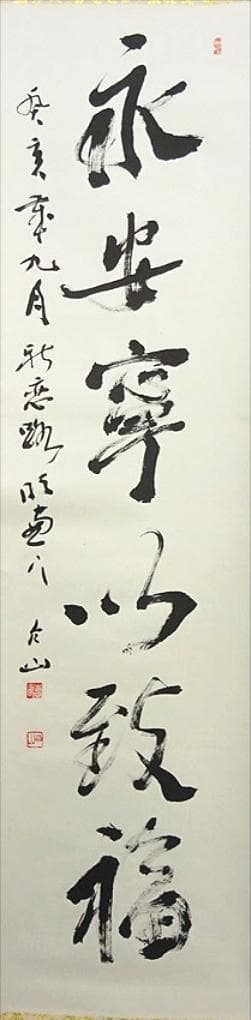 永安寧以致福
癸亥年九月 於戀 山